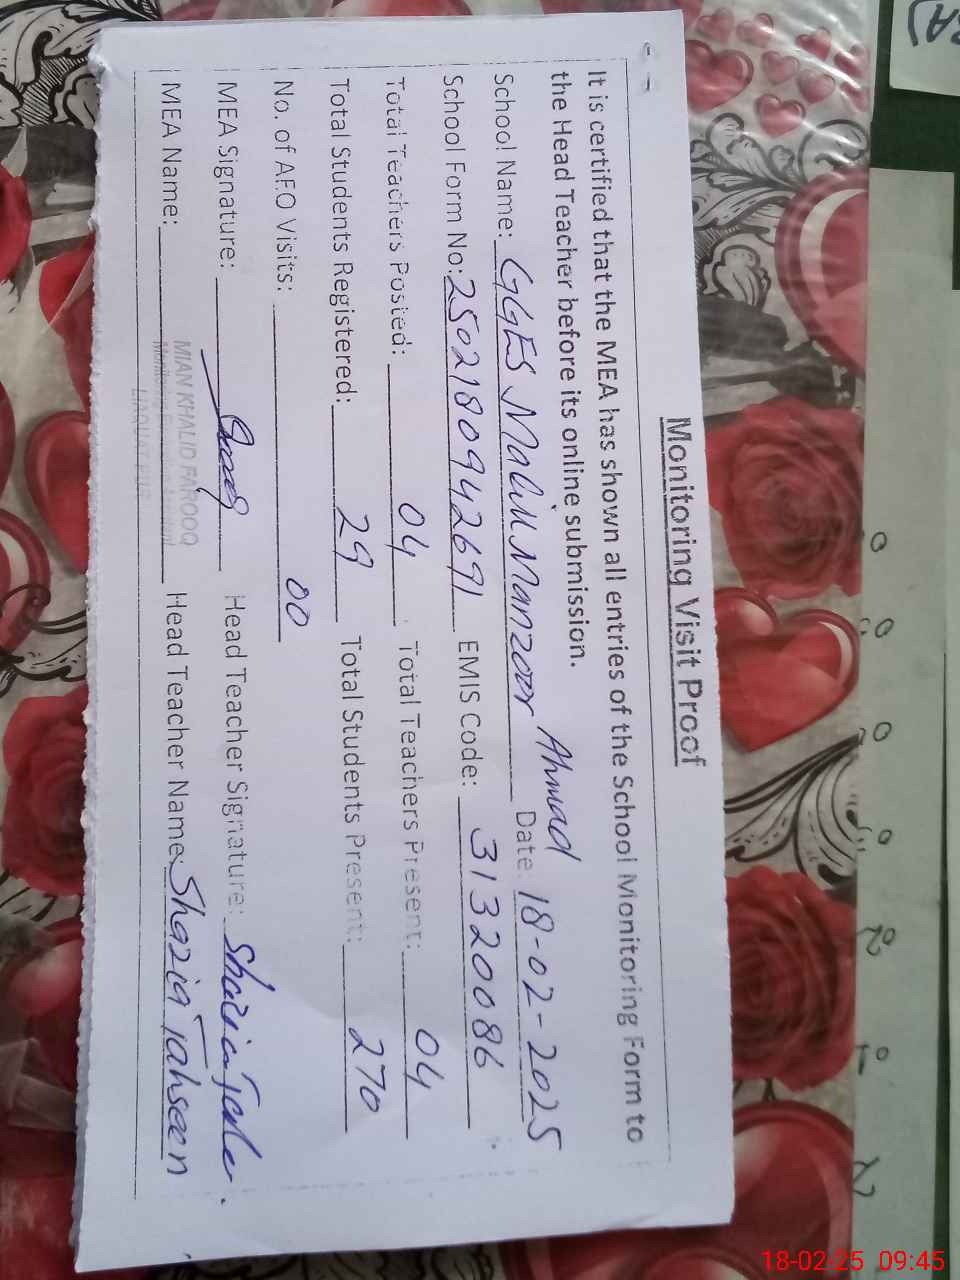 Monitoring Visit Proof
It is certified that the MEA has shown all entries of the School Monitoring Form to
the Head Teacher before its online submission.
School Name: GGES Malik Manzoor Ahmad Date: 18-02-2025
School Form No: 25021809942691 EMIS Code: 31320086
Total Teachers Posted: 04 Total Teachers Present: 04
Total Students Registered: 29 Total Students Present: 270
No. of AEO Visits: 00
MEA Signature: Head Teacher Signature: Shazia
MIAN KHALID FAROOQ
MEA Name: Head Teacher Name: Shazia Tahseen
Monitoring
LIAQUAT PUR
18-02-25 09:45